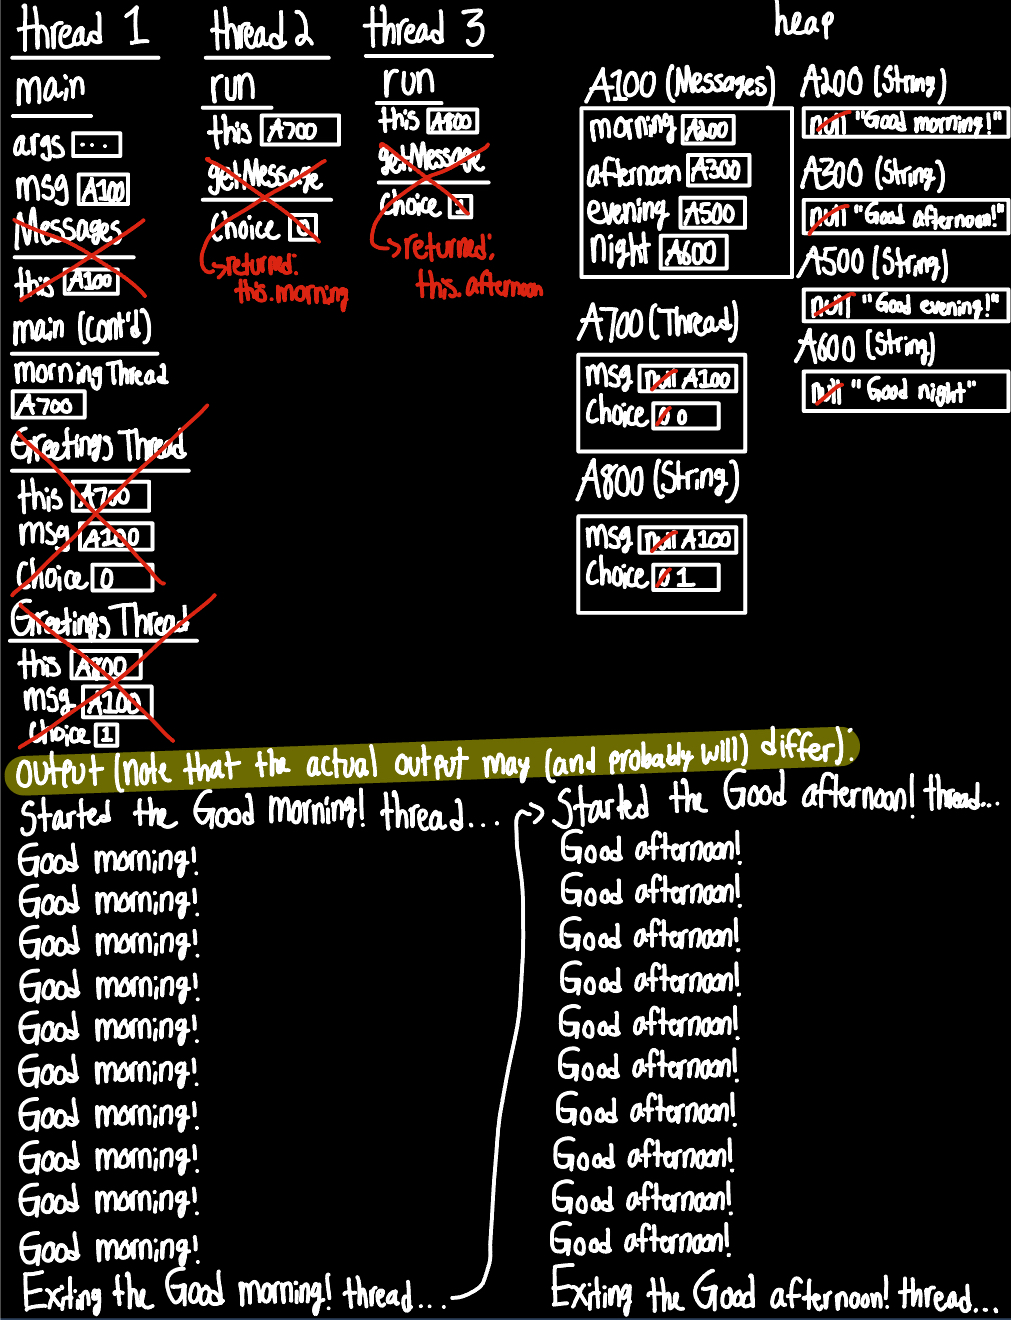 thread 1
main
args ...
msg A100
Messages
this A100
main (cont'd)
morning Thread
A700
Greetings Thread
this A700
msg A100
choice 0
Greetings Thread
this A800
msg A100
choice 1
thread 2
run
this A700
getMessage
choice 0
returned:
this.morning
thread 3
run
this A800
getMessage
choice 1
returned:
this.afternoon
heap
A100 (Messages)
morning A200
afternoon A300
evening A500
night A600
A700 (Thread)
msg null A100
choice 0 0
A800 (String)
msg null A100
choice 0 1
A200 (String)
null "Good morning!"
A300 (String)
null "Good afternoon!"
A500 (String)
null "Good evening!"
A600 (String)
null "Good night"
output (note that the actual output may (and probably will) differ):
Started the Good morning! thread...
Good morning!
Good morning!
Good morning!
Good morning!
Good morning!
Good morning!
Good morning!
Good morning!
Good morning!
Good morning!
Exiting the Good morning! thread...
Started the Good afternoon! thread...
Good afternoon!
Good afternoon!
Good afternoon!
Good afternoon!
Good afternoon!
Good afternoon!
Good afternoon!
Good afternoon!
Good afternoon!
Good afternoon!
Exiting the Good afternoon! thread...